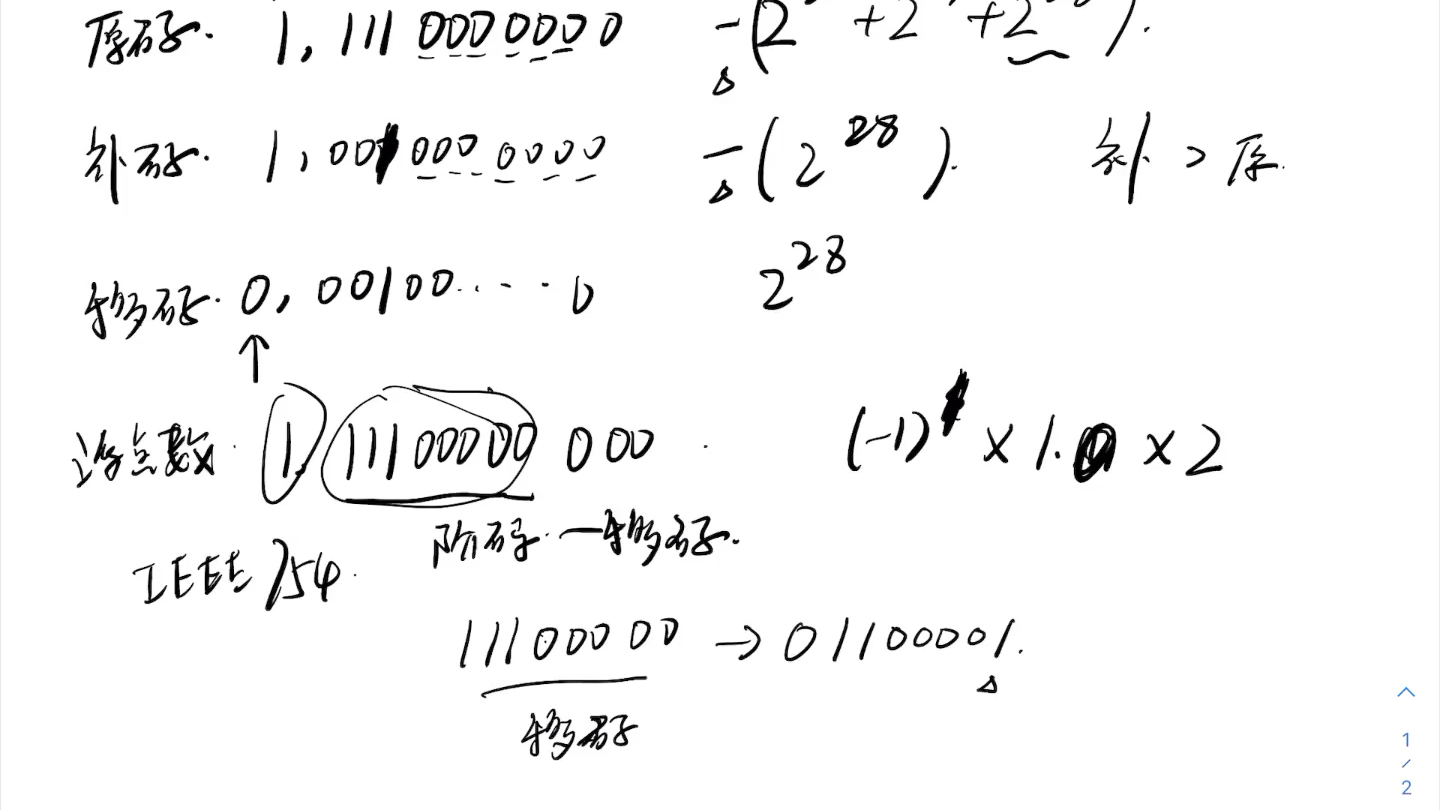 原码. 1, 111 000 0000 -(2 +2 +2 ).
补码. 1, 001 000 0000 -(2^28). 补 > 原.
移码. 0, 00100.....0 2^28
↑
浮点数. 1. 11100000 000 . (-1)^1 × 1.0 × 2
阶码. — 移码.
IEEE 754.
11100000 → 01100001.
移码
1
/
2